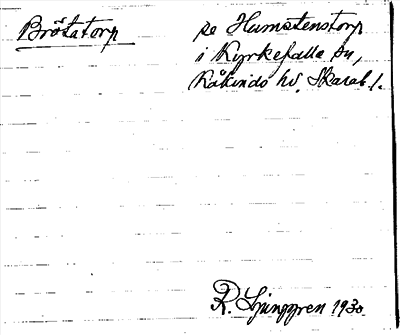 Brötatorp
se Humstenstorp
i Kyrkefalla sn,
Kåkinds hd, Skarab. l.
R. Ljunggren 1930.